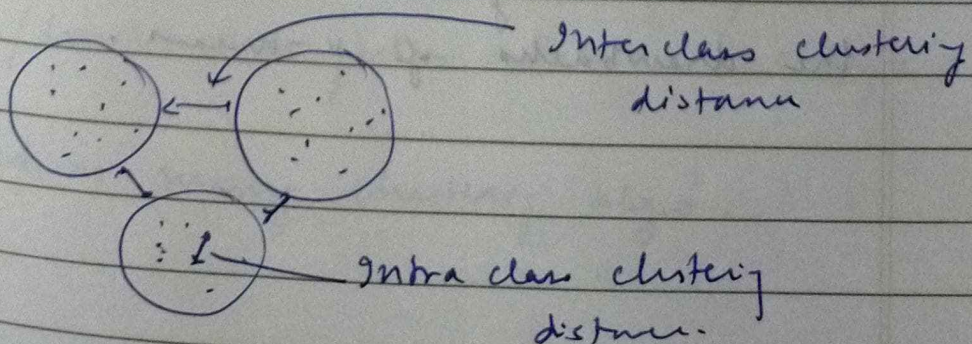 Inter class clustering
distance
Intra class clustering
distance.